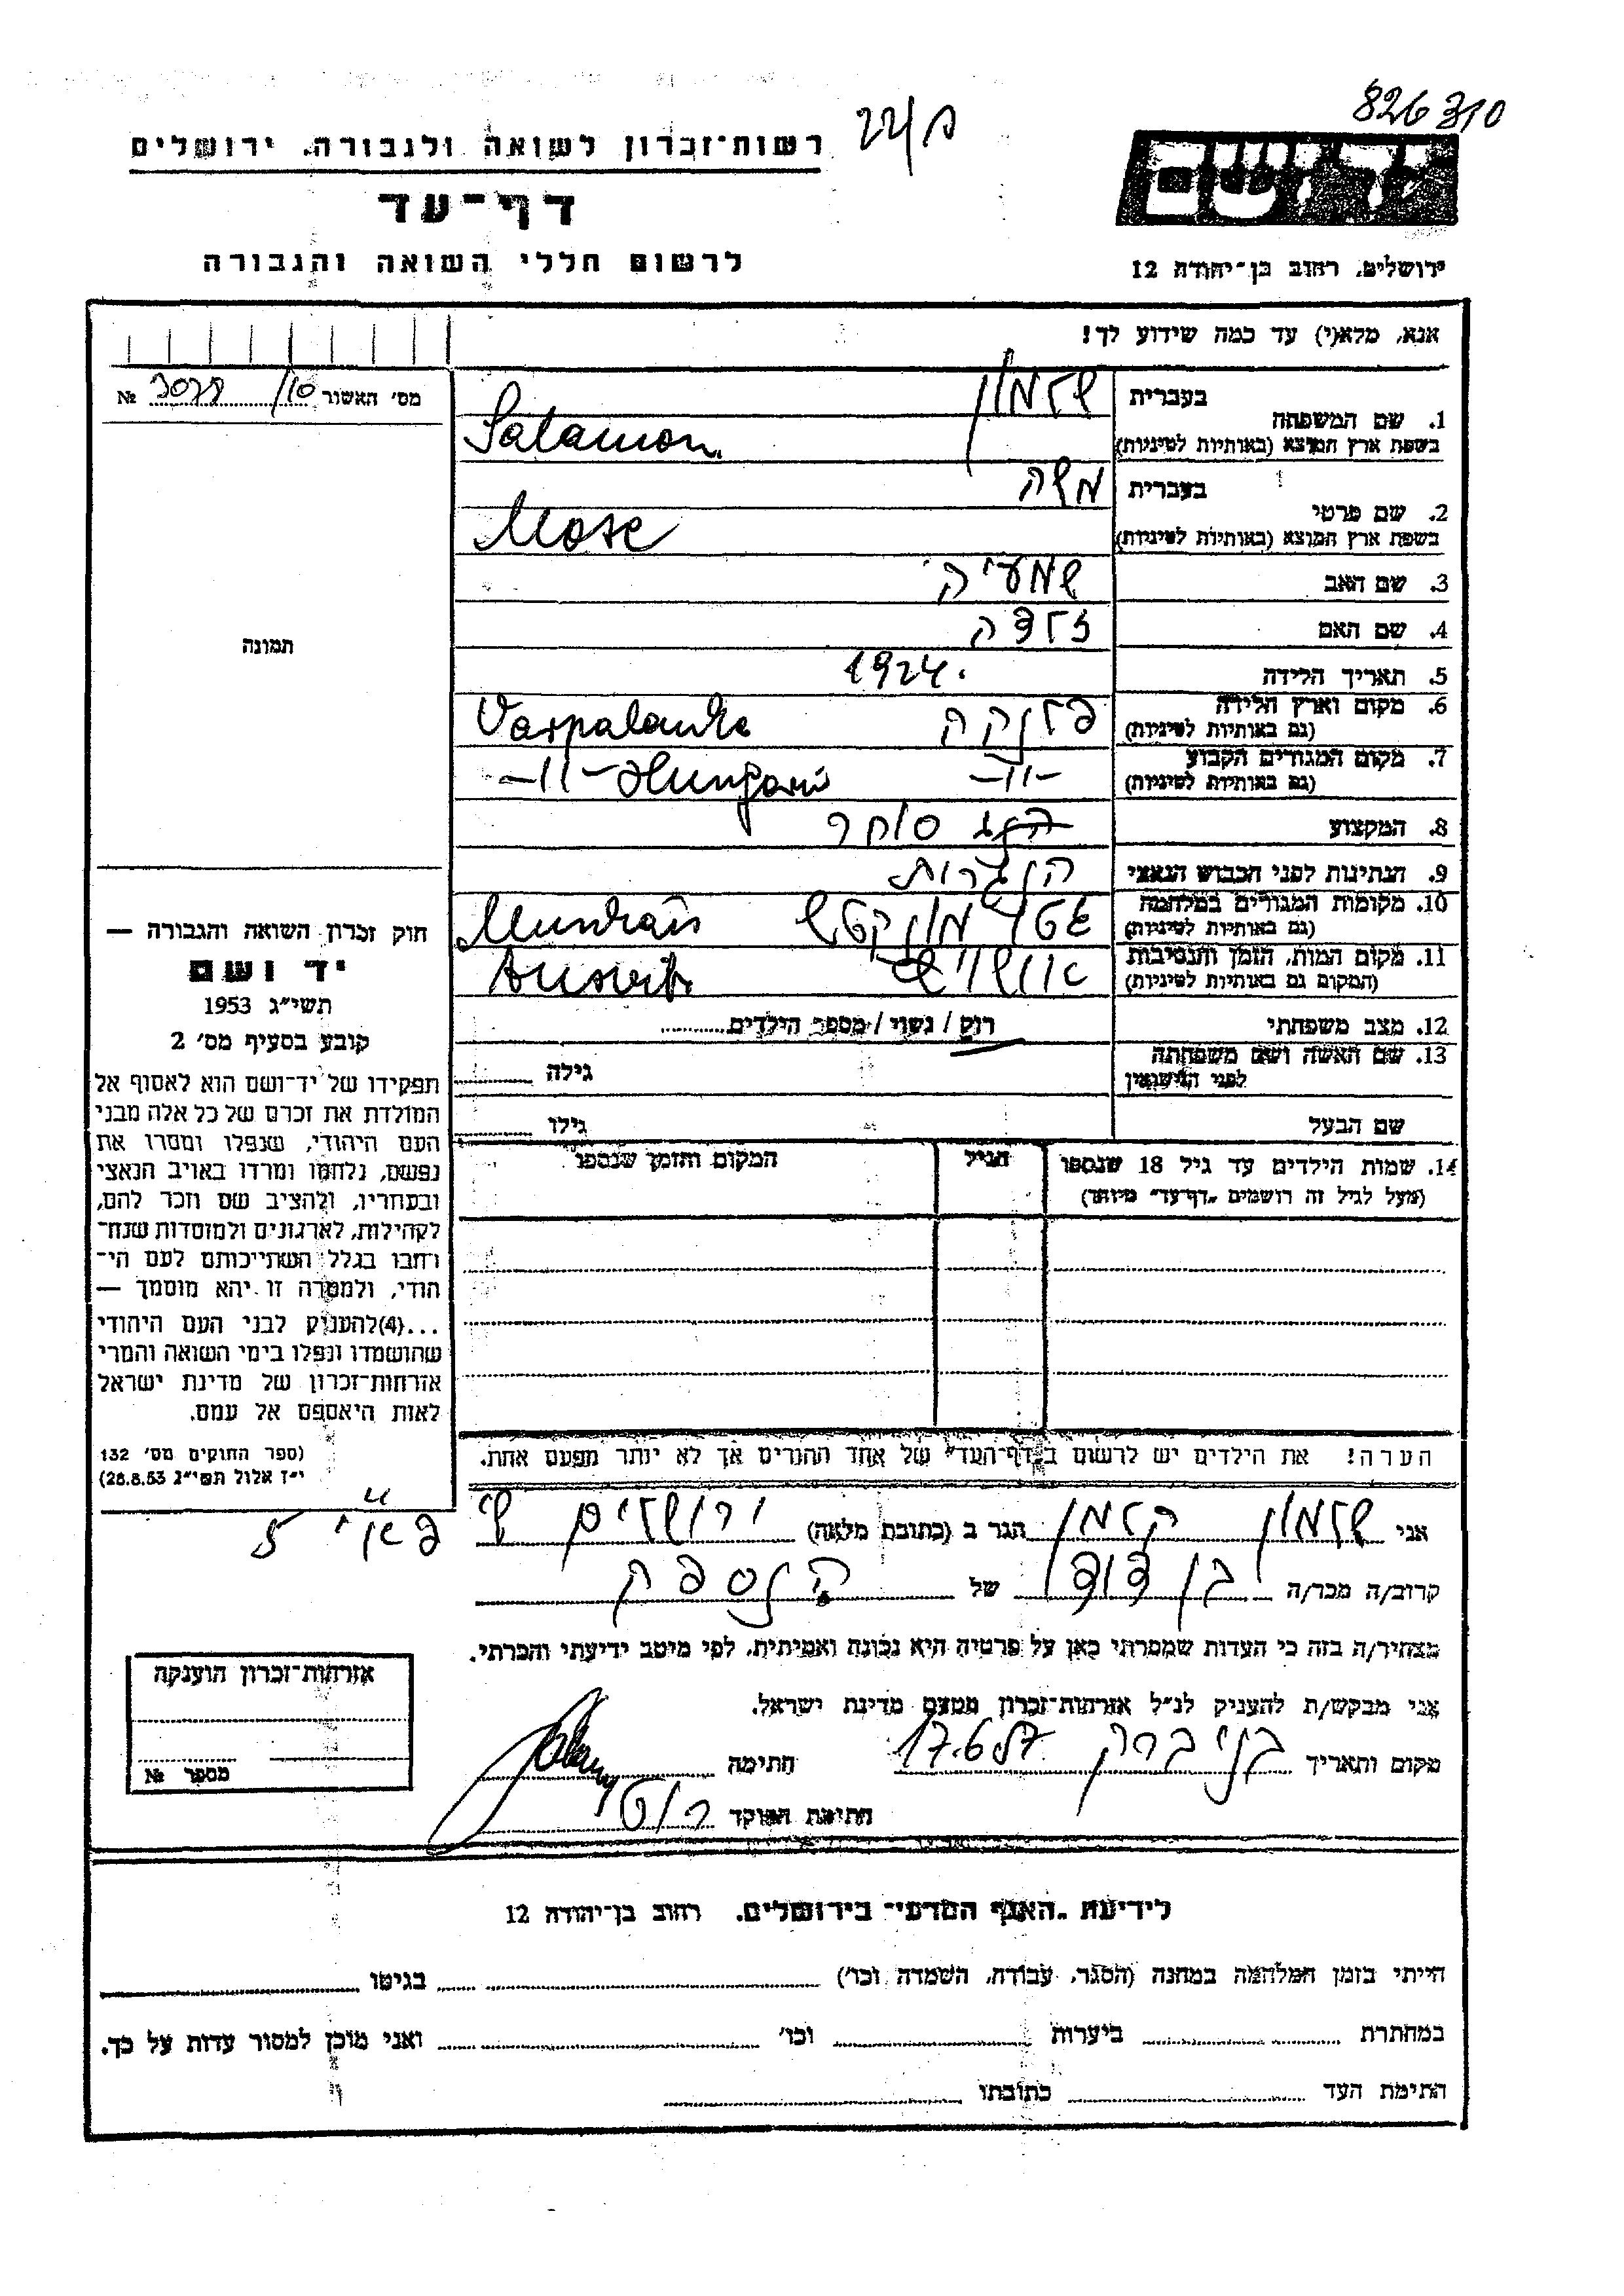 826310
22/ה
רשות־זכרון לשואה ולגבורה, ירושלים
דף־עד
לרשום חללי השואה והגבורה
יד ושם
ירושלים, רחוב בן־יהודה 12
אנא, מלא(י) עד כמה שידוע לך!
מס' האשור № 3078/10
1. שם המשפחה בעברית שלמון
בשפת ארץ המוצא (באותיות לטיניות) Salamon
2. שם פרטי בעברית משה
בשפת ארץ המוצא (באותיות לטיניות) Mose
3. שם האב שמעיה
4. שם האם זלדה
5. תאריך הלידה 1924.
6. מקום וארץ הלידה (גם באותיות לטיניות) פלנקה Varpalanka
7. מקום המגורים הקבוע (גם באותיות לטיניות) –״– –״– Hungari
8. המקצוע סוחר
9. הנתינות לפני הכבוש הנאצי הונגרית
10. מקומות המגורים במלחמה (גם באותיות לטיניות) גטו מונקטש Munkač
11. מקום המות, הזמן והנסיבות (המקום גם באותיות לטיניות) אושויץ Auswitz
12. מצב משפחתי רוק / נשוי / מספר הילדים
13. שם האשה ושם משפחתה לפני הנישואין גילה
שם הבעל גילו
14. שמות הילדים עד גיל 18 שנספו (מעל לגיל זה רושמים "דף־עד" מיוחד) הגיל המקום והזמן שנספו
הערה! את הילדים יש לרשום ב"דף־העד" של אחד ההורים אך לא יותר מפעם אחת.
תמונה
חוק זכרון השואה והגבורה —
יד ושם
תשי״ג 1953
קובע בסעיף מס' 2
תפקידו של יד־ושם הוא לאסוף אל
המולדת את זכרם של כל אלה מבני
העם היהודי, שנפלו ומסרו את
נפשם, נלחמו ומרדו באויב הנאצי
ובעוזריו, ולהציב שם וזכר להם,
לקהילות, לארגונים ולמוסדות שנח־
רבו בגלל השתייכותם לעם הי־
הודי, ולמטרה זו יהא מוסמך —
...(4)להעניק לבני העם היהודי
שהושמדו ונפלו בימי השואה והמרי
אזרחות־זכרון של מדינת ישראל
לאות היאספם אל עמם.
(ספר החוקים מס' 132
י״ז אלול תשי״ג 28.8.53)
אני שלמון קלמן הגר ב (כתובת מלאה) ירושלים
קרוב/ה מכר/ה בן דוד של הנספה
מצהיר/ה בזה כי העדות שמסרתי כאן על פרטיה היא נכונה ואמיתית, לפי מיטב ידיעתי והכרתי.
אני מבקש/ת להעניק לנ״ל אזרחות־זכרון מטעם מדינת ישראל.
מקום ותאריך בני ברק 17.6.57 חתימה
חתימת הפוקד רוט
אזרחות־זכרון הוענקה
מספר №
לידיעת "האגף המדעי" בירושלים, רחוב בן־יהודה 12
הייתי בזמן המלחמה במחנה (הסגר, עבודה, השמדה וכו') בגיטו
במחתרת ביערות וכו' ואני מוכן למסור עדות על כך.
חתימת העד כתובתו